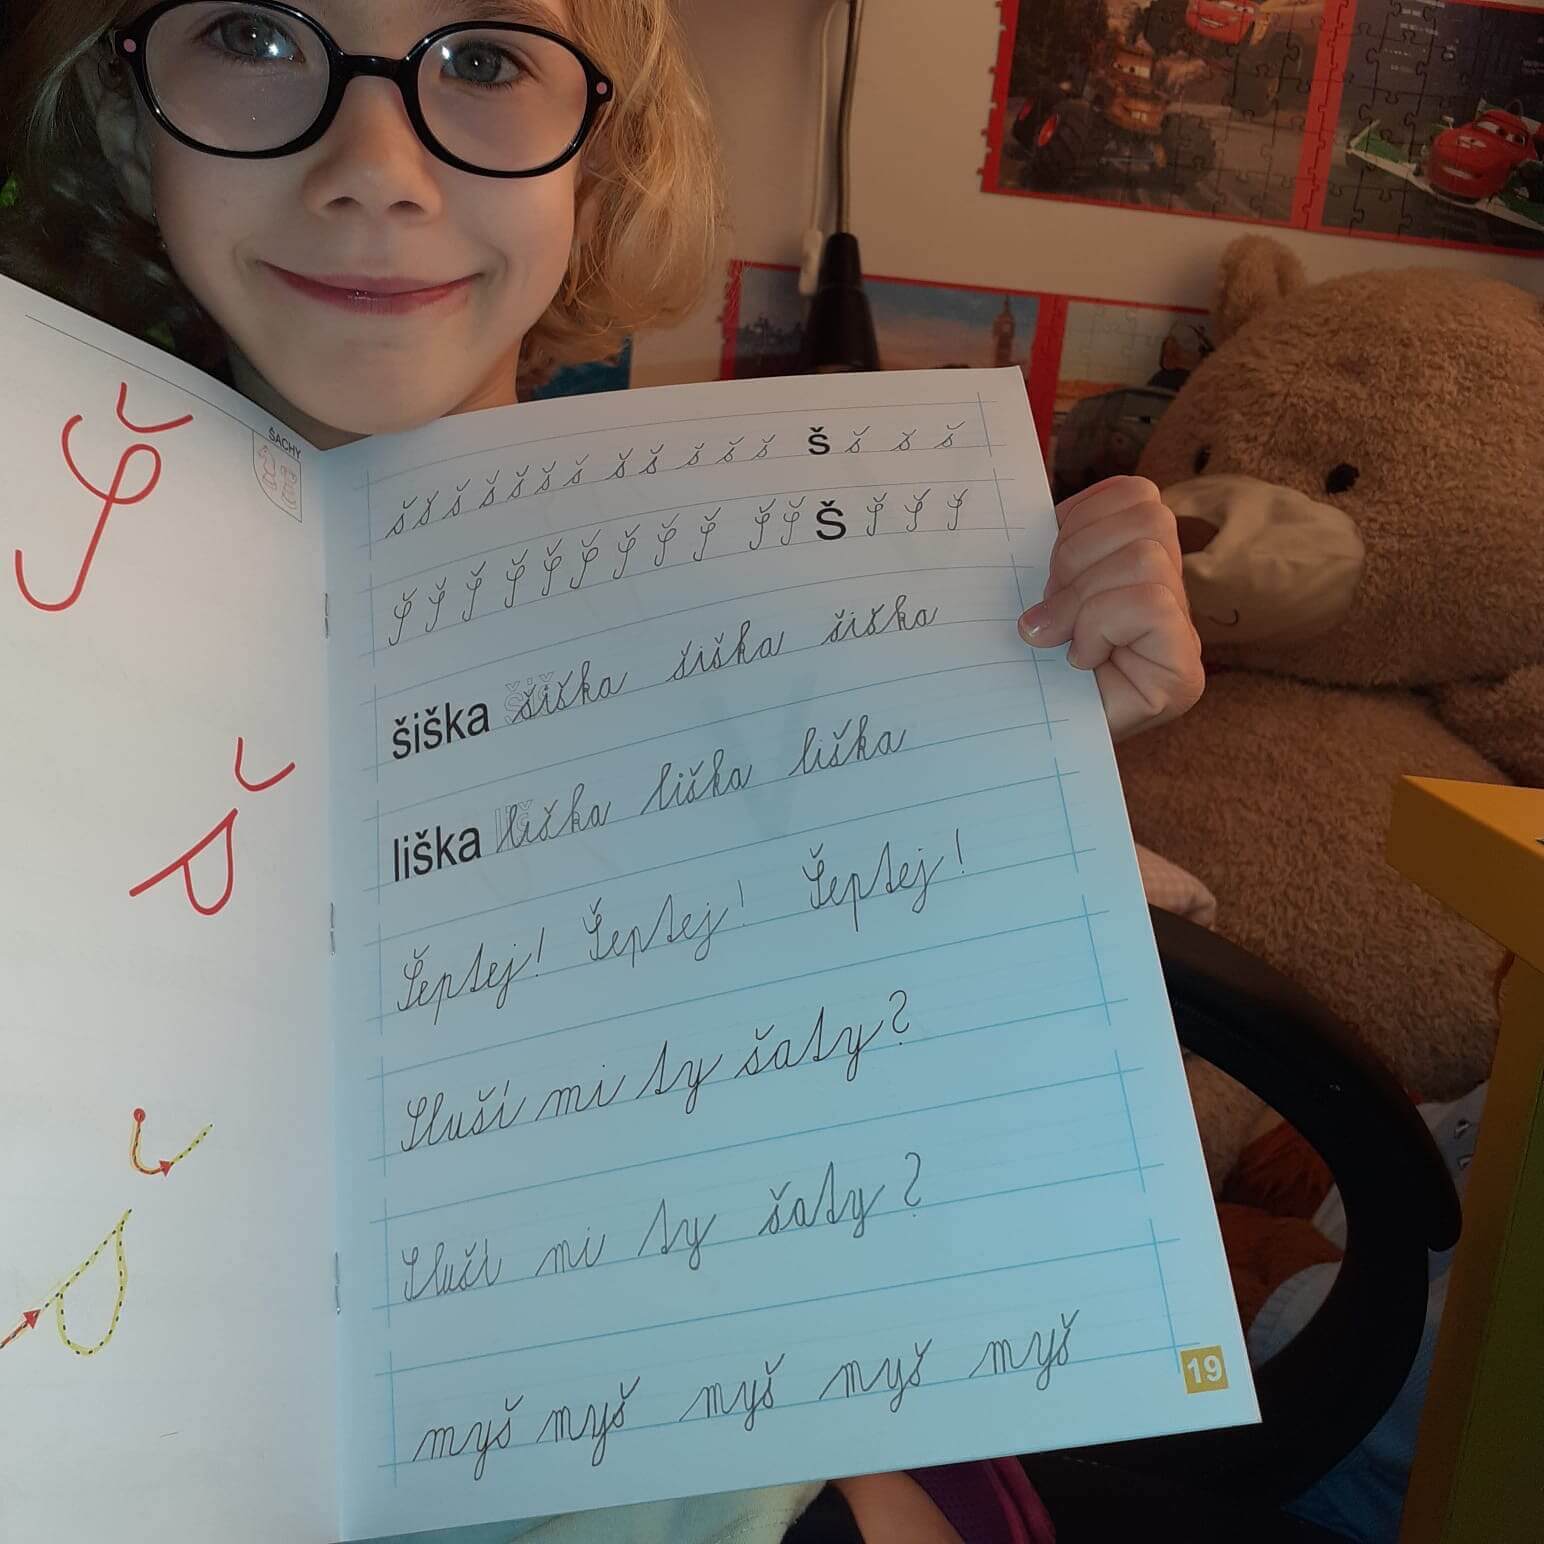 Š
ŠACHY
š š š š š š š š š š š š š š š š
Š Š Š Š Š Š Š Š Š Š Š Š Š Š Š
šiška šiška šiška šiška
liška liška liška liška
Šeptej! Šeptej! Šeptej!
Sluší mi ty šaty?
Sluší mi ty šaty?
myš myš myš myš myš
19